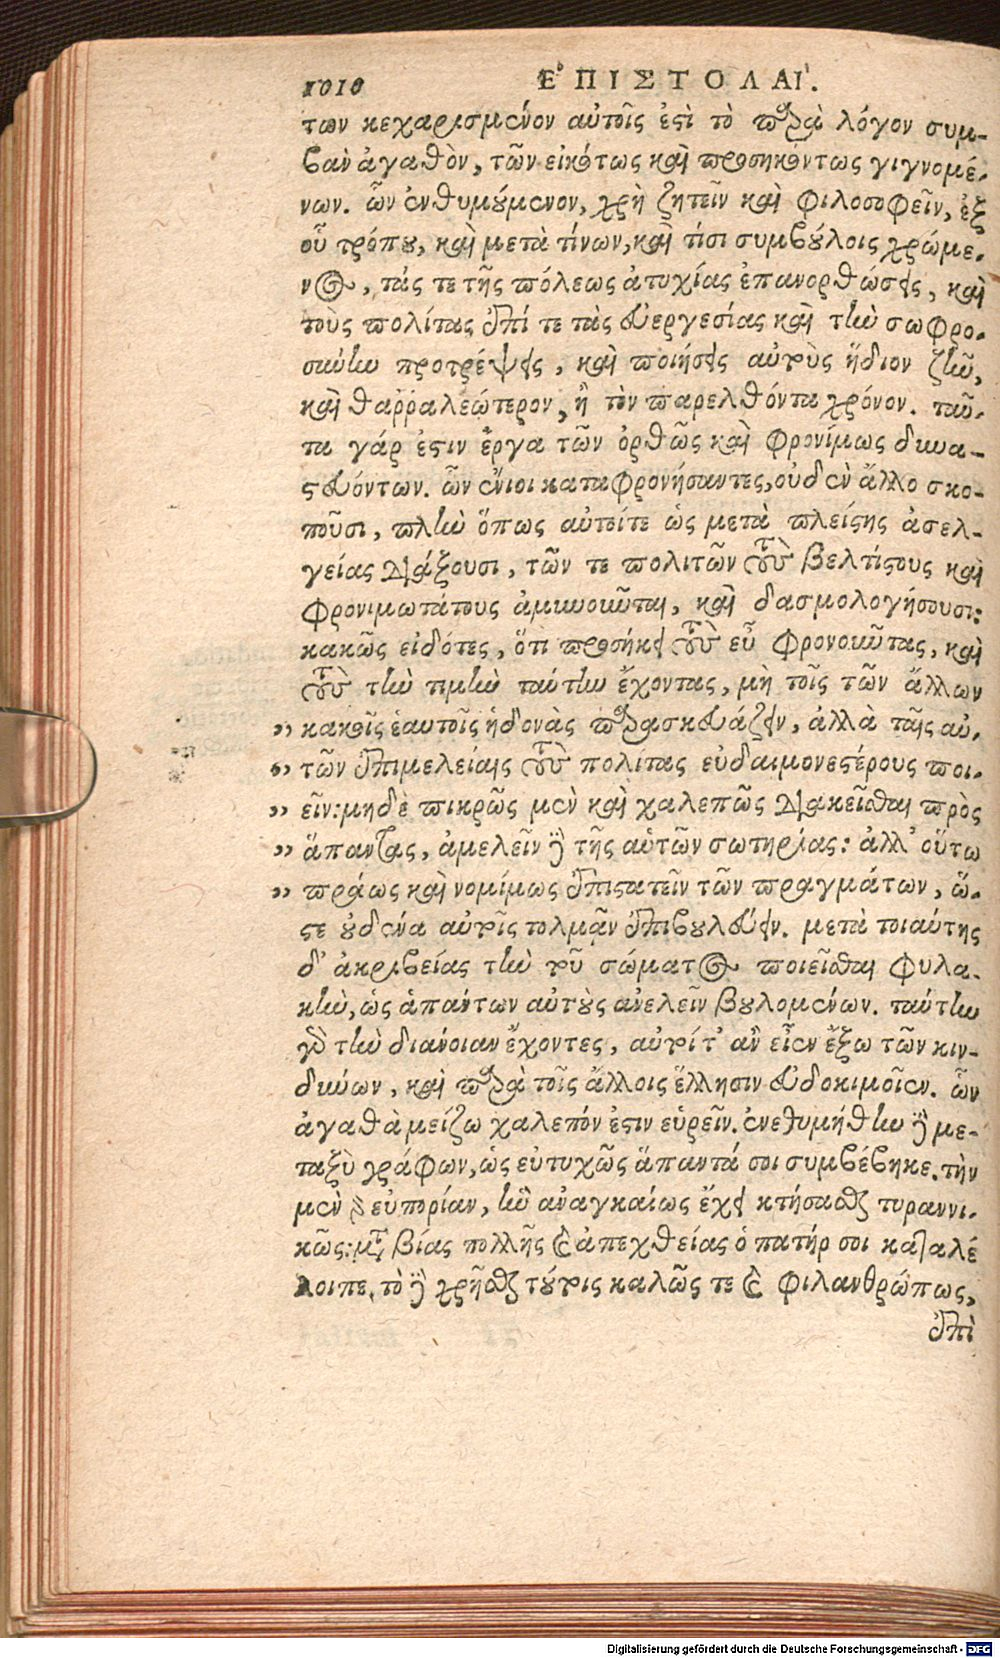 1010 ἘΠΙΣΤΟΛΑΙ.
των κεχαρισμένον αὐτοῖς ἐστὶ τὸ παρὰ λόγον συμ-
βὰν ἀγαθὸν, τῶν εἰκότως καὶ προσηκόντως γιγνομέ-
νων. ὧν ἐνθυμούμενον, χρὴ ζητεῖν καὶ φιλοσοφεῖν, ἐξ
οὗ τρόπου, καὶ μετὰ τίνων, καὶ τίσι συμβούλοις χρώμε-
νος, τάς τε τῆς πόλεως ἀτυχίας ἐπανορθώσεις, καὶ
τοὺς πολίτας ἐπί τε τὰς ἐυεργεσίας καὶ τὴν σωφρο-
σύνην προτρέψεις, καὶ ποιήσεις αὐτοὺς ἥδιον ζῆν,
καὶ θαῤῥαλεώτερον, ἢ τὸν παρελθόντα χρόνον. ταῦ-
τα γάρ ἐστιν ἔργα τῶν ὀρθῶς καὶ φρονίμως δυνα-
στευόντων. ὧν ἔνιοι καταφρονήσαντες, οὐδὲν ἄλλο σκο-
ποῦσι, πλὴν ὅπως αὐτοίτε ὡς μετὰ πλείστης ἀσελ-
γείας διάξουσι, τῶν τε πολιτῶν τοὺς βελτίστους καὶ
φρονιμωτάτους ἀμυνοῦνται, καὶ δασμολογήσουσι:
κακῶς εἰδότες, ὅτι προσήκει τοὺς εὖ φρονοῦντας, καὶ
τοὺς τὴν τιμὴν ταύτην ἔχοντας, μὴ τοῖς τῶν ἄλλων
„ κακοῖς ἑαυτοῖς ἡδονὰς παρασκευάζειν, ἀλλὰ ταῖς αὑ-
„ τῶν ἐπιμελείαις τοὺς πολίτας εὐδαιμονεστέρους ποι-
„ εῖν: μηδὲ πικρῶς μὲν καὶ χαλεπῶς διακεῖσθαι πρὸς
„ ἅπαντας, ἀμελεῖν δὲ τῆς αὑτῶν σωτηρίας: ἀλλ' οὕτω
„ πράως καὶ νομίμως ἐπιστατεῖν τῶν πραγμάτων, ὥ-
στε οὐδένα αὐτοῖς τολμᾷν ἐπιβουλεύειν. μετὰ τοιαύτης
δ' ἀκριβείας τὴν τοῦ σώματος ποιεῖσθαι φυλα-
κὴν, ὡς ἁπάντων αὐτοὺς ἀνελεῖν βουλομένων. ταύτην
γὰρ τὴν διάνοιαν ἔχοντες, αὐτοί τ' ἂν εἶεν ἔξω τῶν κιν-
δύνων, καὶ παρὰ τοῖς ἄλλοις ἕλλησιν εὐδοκιμοῖεν. ὧν
ἀγαθὰ μείζω χαλεπόν ἐστιν εὑρεῖν. ἐνεθυμήθην δὲ με-
ταξὺ γράφων, ὡς εὐτυχῶς ἅπαντά σοι συμβέβηκε. τὴν
μὲν γὰρ εὐπορίαν, ἣν ἀναγκαίως ἔχει κτήσασθαι τυραννι-
κῶς: μετὰ βίας πολλῆς καὶ ἀπεχθείας ὁ πατήρ σοι καταλέ
λοιπε, τὸ δὲ χρῆσθαι τούτοις καλῶς τε καὶ φιλανθρώπως,
ἐπὶ
Digitalisierung gefördert durch die Deutsche Forschungsgemeinschaft - DFG